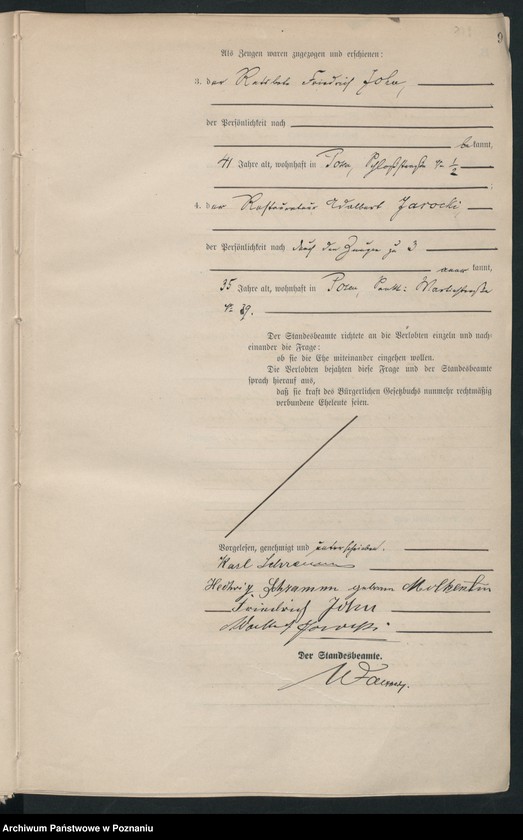 9
Als Zeugen waren zugezogen und erschienen:
3. der Ratsbote Friedrich John,
der Persönlichkeit nach
bekannt,
41 Jahre alt, wohnhaft in Posen, Schloßstraße № 1/2
;
4. der Restaurateur Adalbert Jarocki,
der Persönlichkeit nach durch den Zeugen zu 3
anerkannt,
35 Jahre alt, wohnhaft in Posen,
№ 39.
Der Standesbeamte richtete an die Verlobten einzeln und nach-
einander die Frage:
ob sie die Ehe miteinander eingehen wollen.
Die Verlobten bejahten diese Frage und der Standesbeamte
sprach hierauf aus,
daß sie kraft des Bürgerlichen Gesetzbuchs nunmehr rechtmäßig
verbundene Eheleute seien.
Vorgelesen, genehmigt und unterschrieben.
Karl Schramm
Hedwig Schramm geborene Molkentin
Friedrich John
Jarocki
Der Standesbeamte.
Archiwum Państwowe w Poznaniu